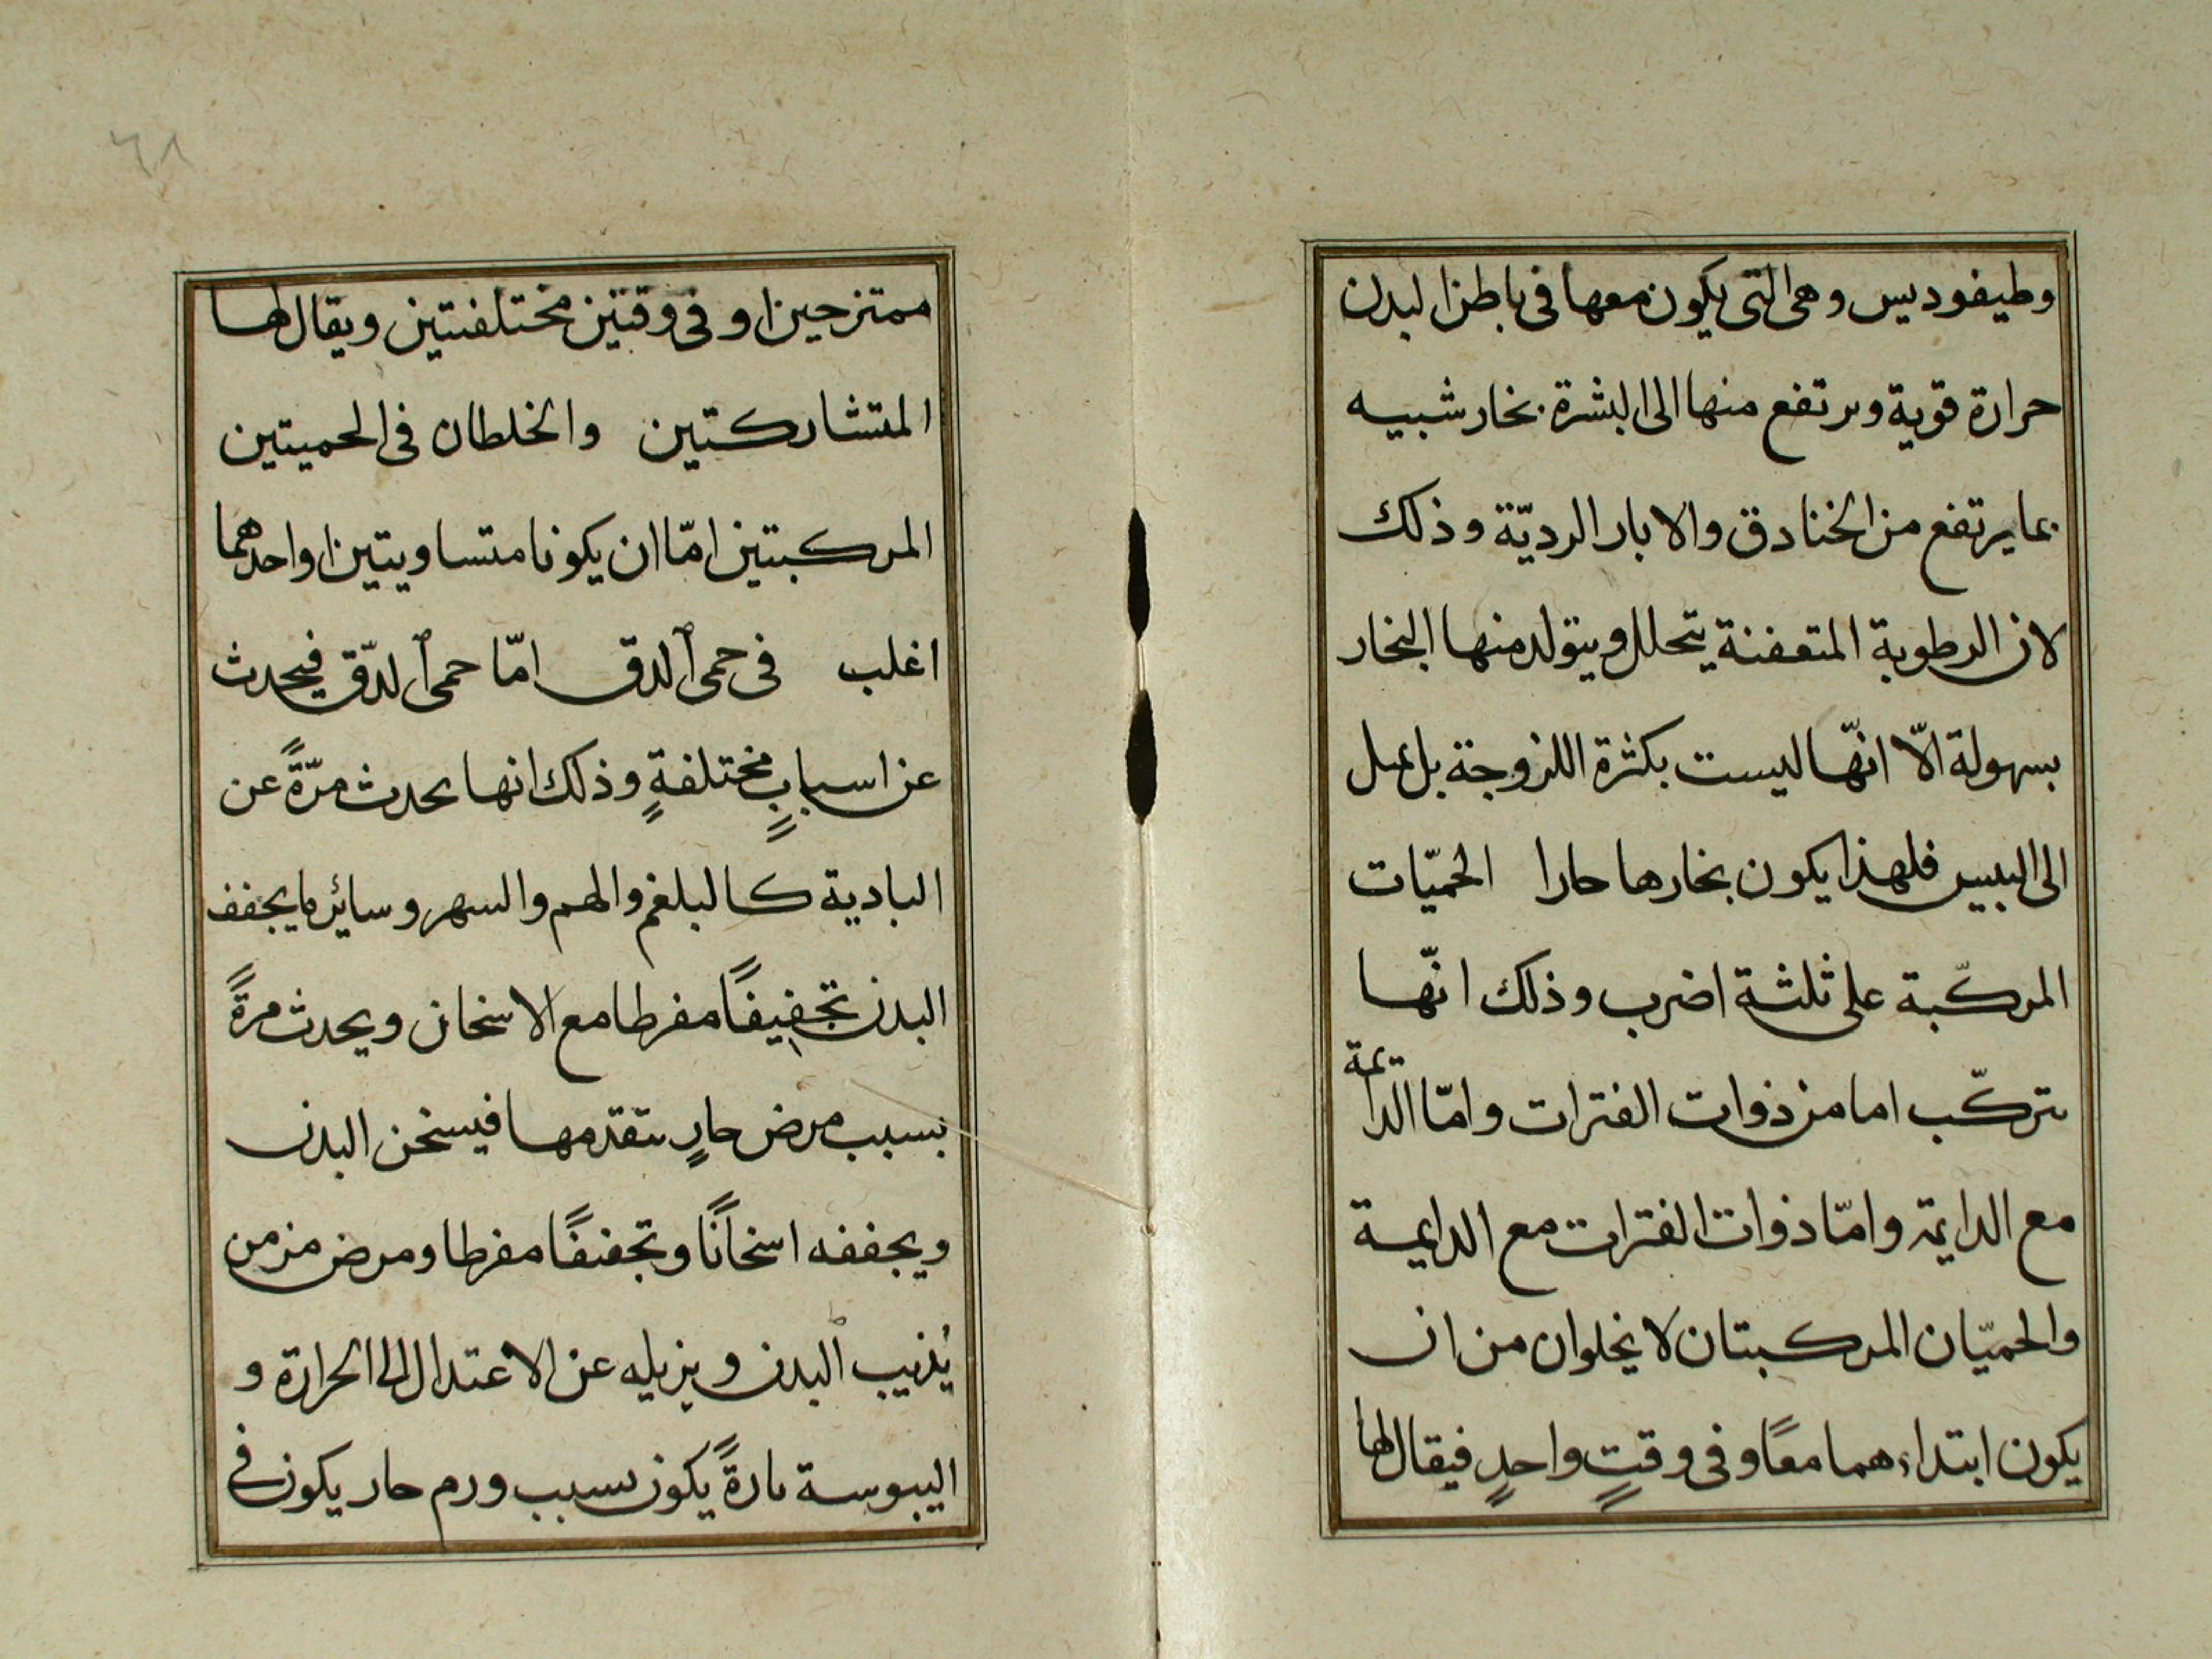 وطيفوديس وهى التى يكون معها فى باطن البدن
حرارة قوية ويرتفع منها الى البشرة بخار شبيه
بما يرتفع من الخنادق والابار الرديّة وذلك
لان الرطوبة المتعفنة يتحلل ويتولد منها البخار
بسهولة الّا انّها ليست بكثرة اللزوجة بل يميل
الى اليبس فلهذا يكون بخارها حارا الحميّات
المركّبة على ثلثة اضرب وذلك انّها
تتركّب اما من ذوات الفترات وامّا الدايمة
مع الدايمة وامّا ذوات الفترات مع الدايمة
والحميّان المركبتان لا يخلوان من ان
يكون ابتداءهما معًا وفى وقتٍ واحدٍ فيقال لها
ممتزجين او فى وقتين مختلفتين ويقال لها
المتشاركتين والخلطان فى الحميتين
المركبتين امّا ان يكونا متساويتين او احدهما
اغلب فى حمى الدق امّا حمى الدّق فيحدث
عن اسبابٍ مختلفةٍ وذلك انها يحدث مرّةً عن
البادية كالبلغم والهم والسهر وسائر ما يجفف
البدن تجفيفًا مفرطا مع الاسخان ويحدث مرةً
بسبب مرض حارٍ يتقدمها فيسخن البدن
ويجففه اسخانًا وتجفيفًا مفرطا ومرض مزمن
يُذيب البدن ويزيله عن الاعتدال الى الحرارة و
اليبوسة تارةً يكون بسبب ورم حار يكون فى
٦٨